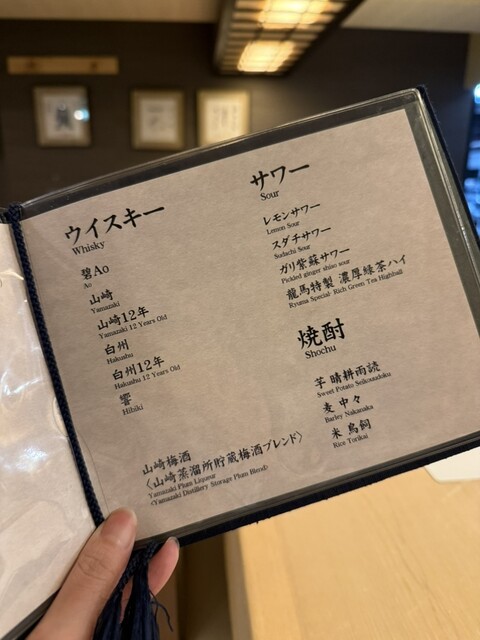 ウイスキー
Whisky
碧Ao
Ao
山崎
Yamazaki
山崎12年
Yamazaki 12 Years Old
白州
Hakushu
白州12年
Hakushu 12 Years Old
響
Hibiki
山崎梅酒
〈山崎蒸溜所貯蔵梅酒ブレンド〉
Yamazaki Plum Liqueur
<Yamazaki Distillery Storage Plum Blend>
サワー
Sour
レモンサワー
Lemon Sour
スダチサワー
Sudachi Sour
ガリ紫蘇サワー
Pickled ginger shiso sour
龍馬特製 濃厚緑茶ハイ
Ryuma Special Rich Green Tea Highball
焼酎
Shochu
芋 晴耕雨読
Sweet Potato Seikouudoku
麦 中々
Barley Nakanaka
米 鳥飼
Rice Torikai